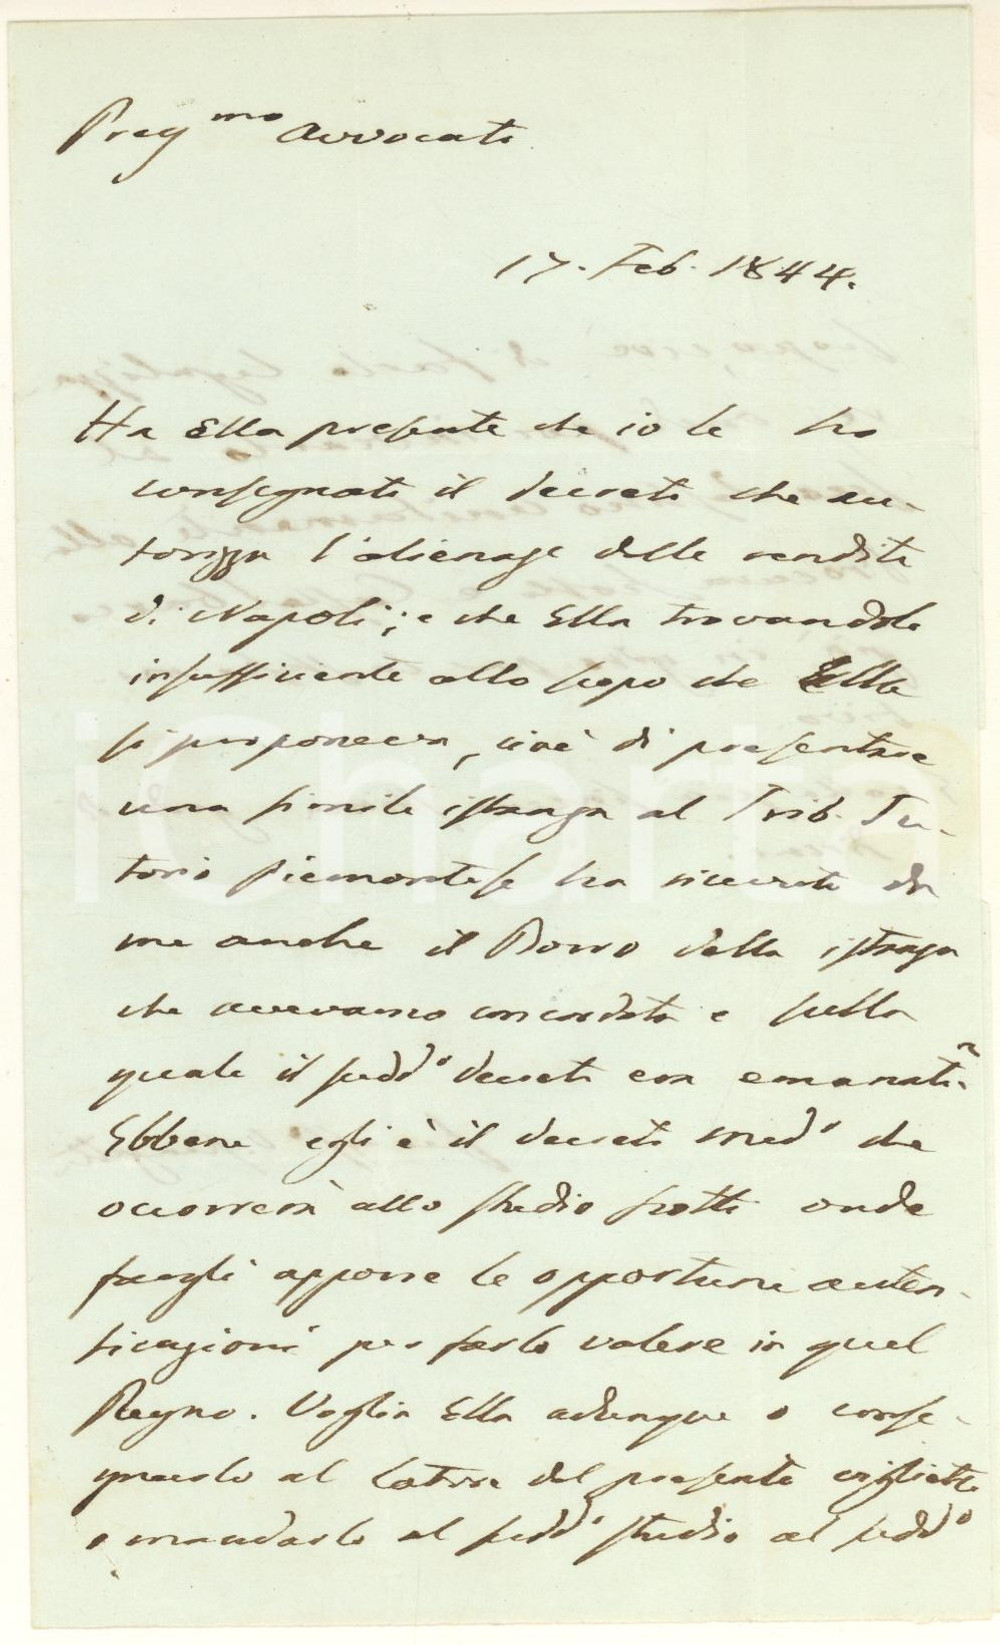 Preg.mo Avvocato
17. Feb. 1844.
Ha Ella presente che io le ho
consegnato il decreto che au-
torizza l'alienaz.e delle rendite
di Napoli; e che Ella trovandolo
insufficiente allo scopo che Ella
si proponeva, cioè di presentare
una simile istanza al Trib. Tu-
torio Piemontese ha ricevuto da
me anche il Borro della istanza
che avevamo concordata e sulla
quale il sudd.o decreto era emanato.
Ebbene egli è il decreto med.o che
occorrerà allo studio onde
fargli apporre le opportune auten-
ticazioni per farlo valere in quel
Regno. Voglia Ella adunque o conse-
gnarlo al latore del presente viglietto
o mandarlo al sudd.o studio al sudd.o
iCharta